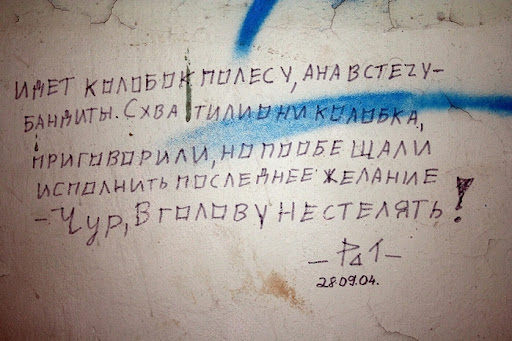 ИДЕТ КОЛОБОК ПОЛЕСУ, АНАВСТЕЧУ-
БАНДИТЫ. СХВАТИЛИ ОНИ КОЛОБКА,
ПРИГОВОРИЛИ, НО ПООБЕЩАЛИ
ИСПОЛНИТЬ ПОСЛЕДНЕЕ ЖЕЛАНИЕ
- ЧУР, В ГОЛОВУ НЕ СТЕЛЯТЬ!
28.09.04.